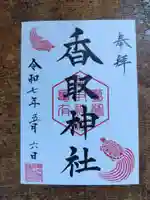 奉拝
香取神社
令和七年五月六日